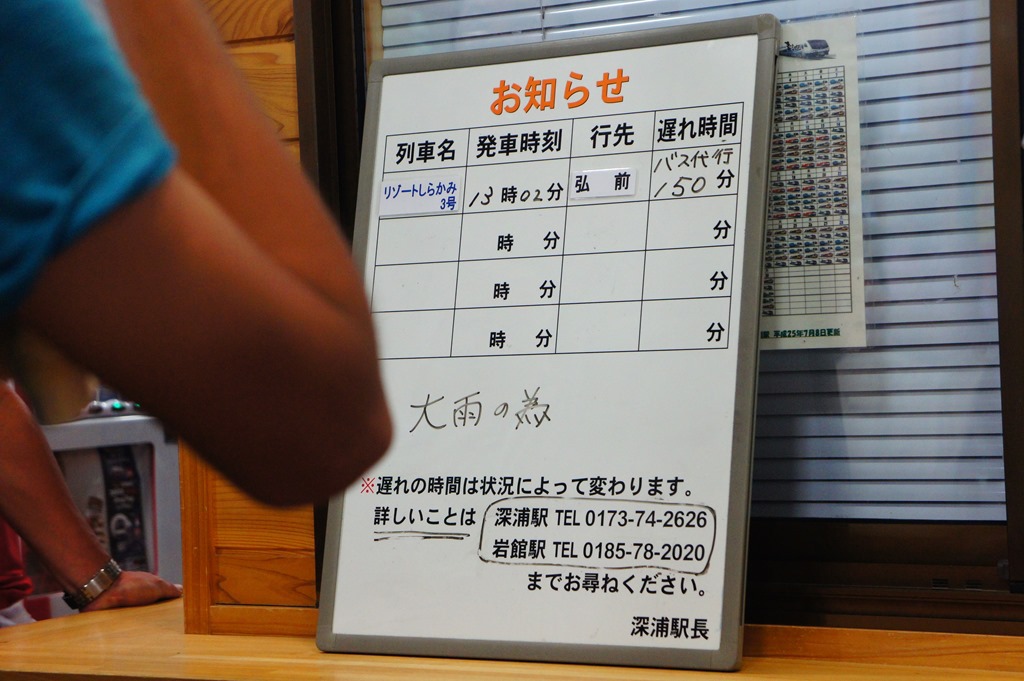 お知らせ
列車名 発車時刻 行先 遅れ時間
リゾートしらかみ 3号 13時02分 弘前 バス代行 150分
時 分 分
時 分 分
時 分 分
大雨の為
※遅れの時間は状況によって変わります。
詳しいことは 深浦駅 TEL 0173-74-2626
岩館駅 TEL 0185-78-2020
までお尋ねください。
深浦駅長
平成25年7月8日更新